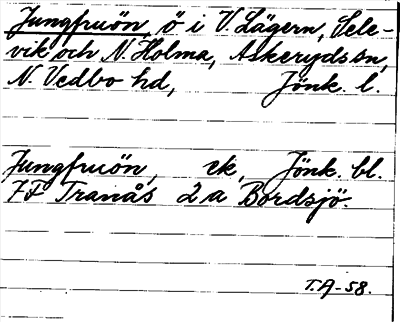 Jungfruön, ö i V. Lägern, Sele-
vik och N. Holma, Askeryds sn,
N. Vedbo hd, Jönk. l.
Jungfruön, ek, Jönk. bl.
7F Tranås 2a Bordsjö.
T.A-58.